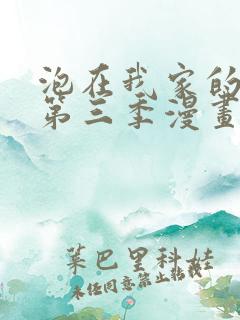 泡在我家的
第三季漫畫
萊巴里科娃
未经同意禁止转载